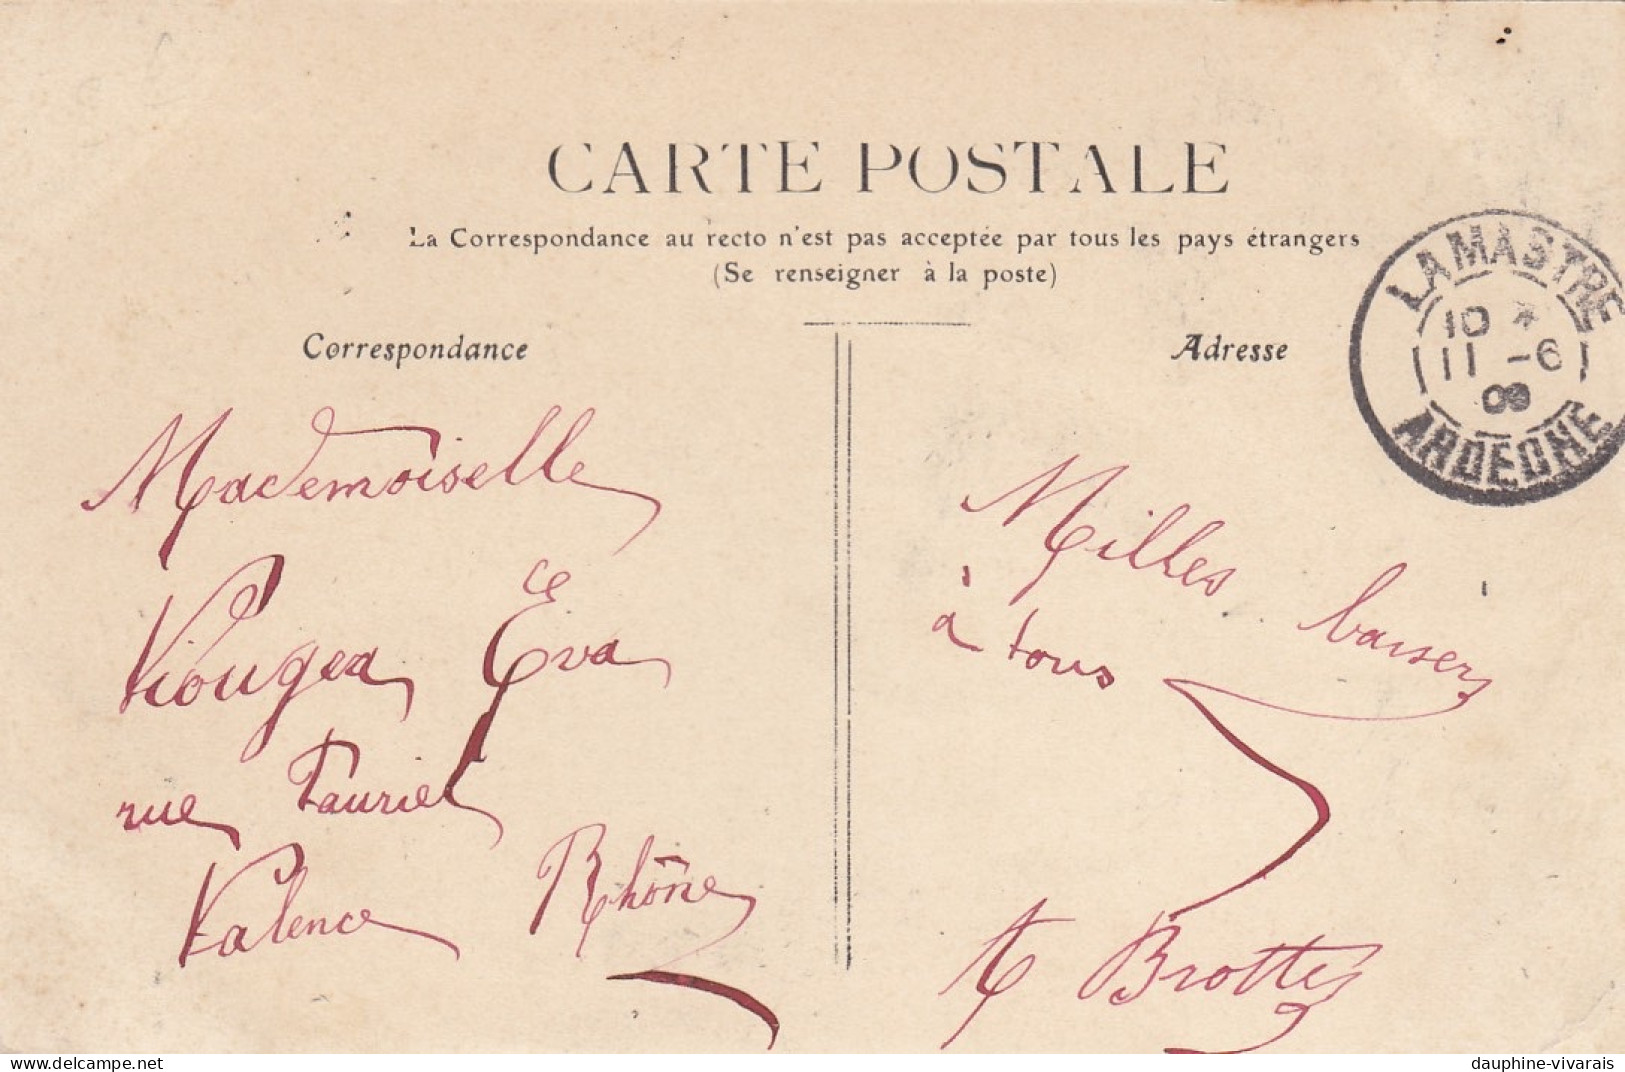 CARTE POSTALE
La Correspondance au recto n'est pas acceptée par tous les pays étrangers
(Se renseigner à la poste)
Correspondance
Adresse
LAMASTRE
10 *
11 -6
09
ARDECHE
Mademoiselle
Eva
rue Pauriel
Valence Rhône
Milles baisers
à tous
A Brottes
www.delcampe.net
dauphine-vivarais